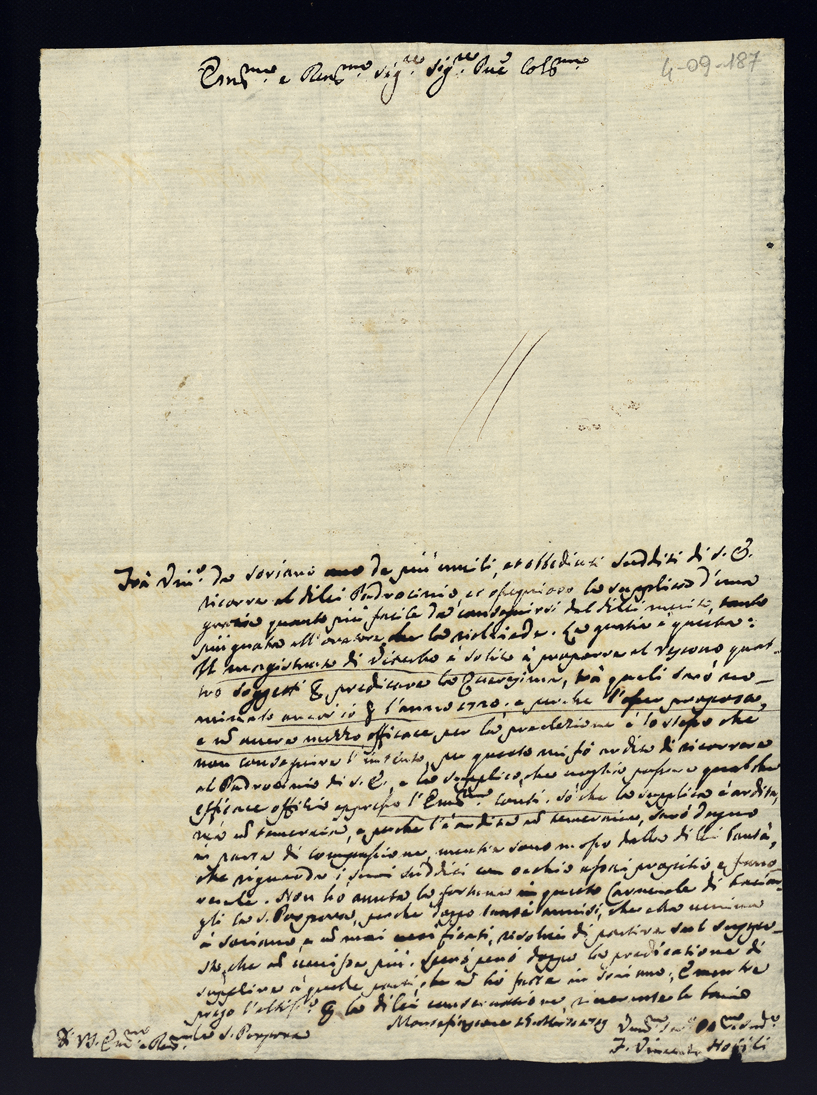 Em.mo e Rev.mo Sig.re Sig.re Pñe Col.mo
4-09-187
Frà Vinc.o da Soriano uno de più umili, et obbedienti sudditi di S. E.
ricorre al di lei Padrocinio, et ossequioso la supplica d'una
grazia quanto più facile da conseguirsi dal di lei merito, tanto
più grata all'oratore, che la richiede. La grazia è questa:
Il magistrato di Viterbo è solito à proporre al Vescovo quat-
tro soggetti p. predicare la Quaresima, trà quali sarò no-
minato ancor io p. l'anno 1720. e perche l'esser proposto,
e nõ avere mezzo efficace per la prelezione è lo stesso che
non conseguire l'intento, per questo mi fò ardito di ricorrere
al Padrocinio di S. E., e la supplico, che voglia passare qualche
efficace offizio appresso l'Em.mo Conti. Sò che la supplica è ardita,
mà nõ temeraria, e perche l'è ardita nõ temeraria, sarò degno
in parte di compassione, mentre sono mosso dalla di lei bontà,
che riguarda i suoi sudditi con occhio assai propizio e favo-
revole. Non hò avuta la fortuna in questo Carnevale di baciar-
gli la S. Porpora, perche doppo tanti avvisi, che che veniva
à Soriano e nõ mai verificati, risolvei di partire sul suppo-
sto, che nõ venisse più. Spero però doppo la predicatione di
supplire à queste parti, che nõ hò fatte in Soriano, E mentre
prego l'altiss.o p. la di lei conservatione, riverente le bacio
Di V. Em.za e Rev.ma la S. Porpora
Montefiascone 15 Marzo 1719
F. Vincenzo Nobili